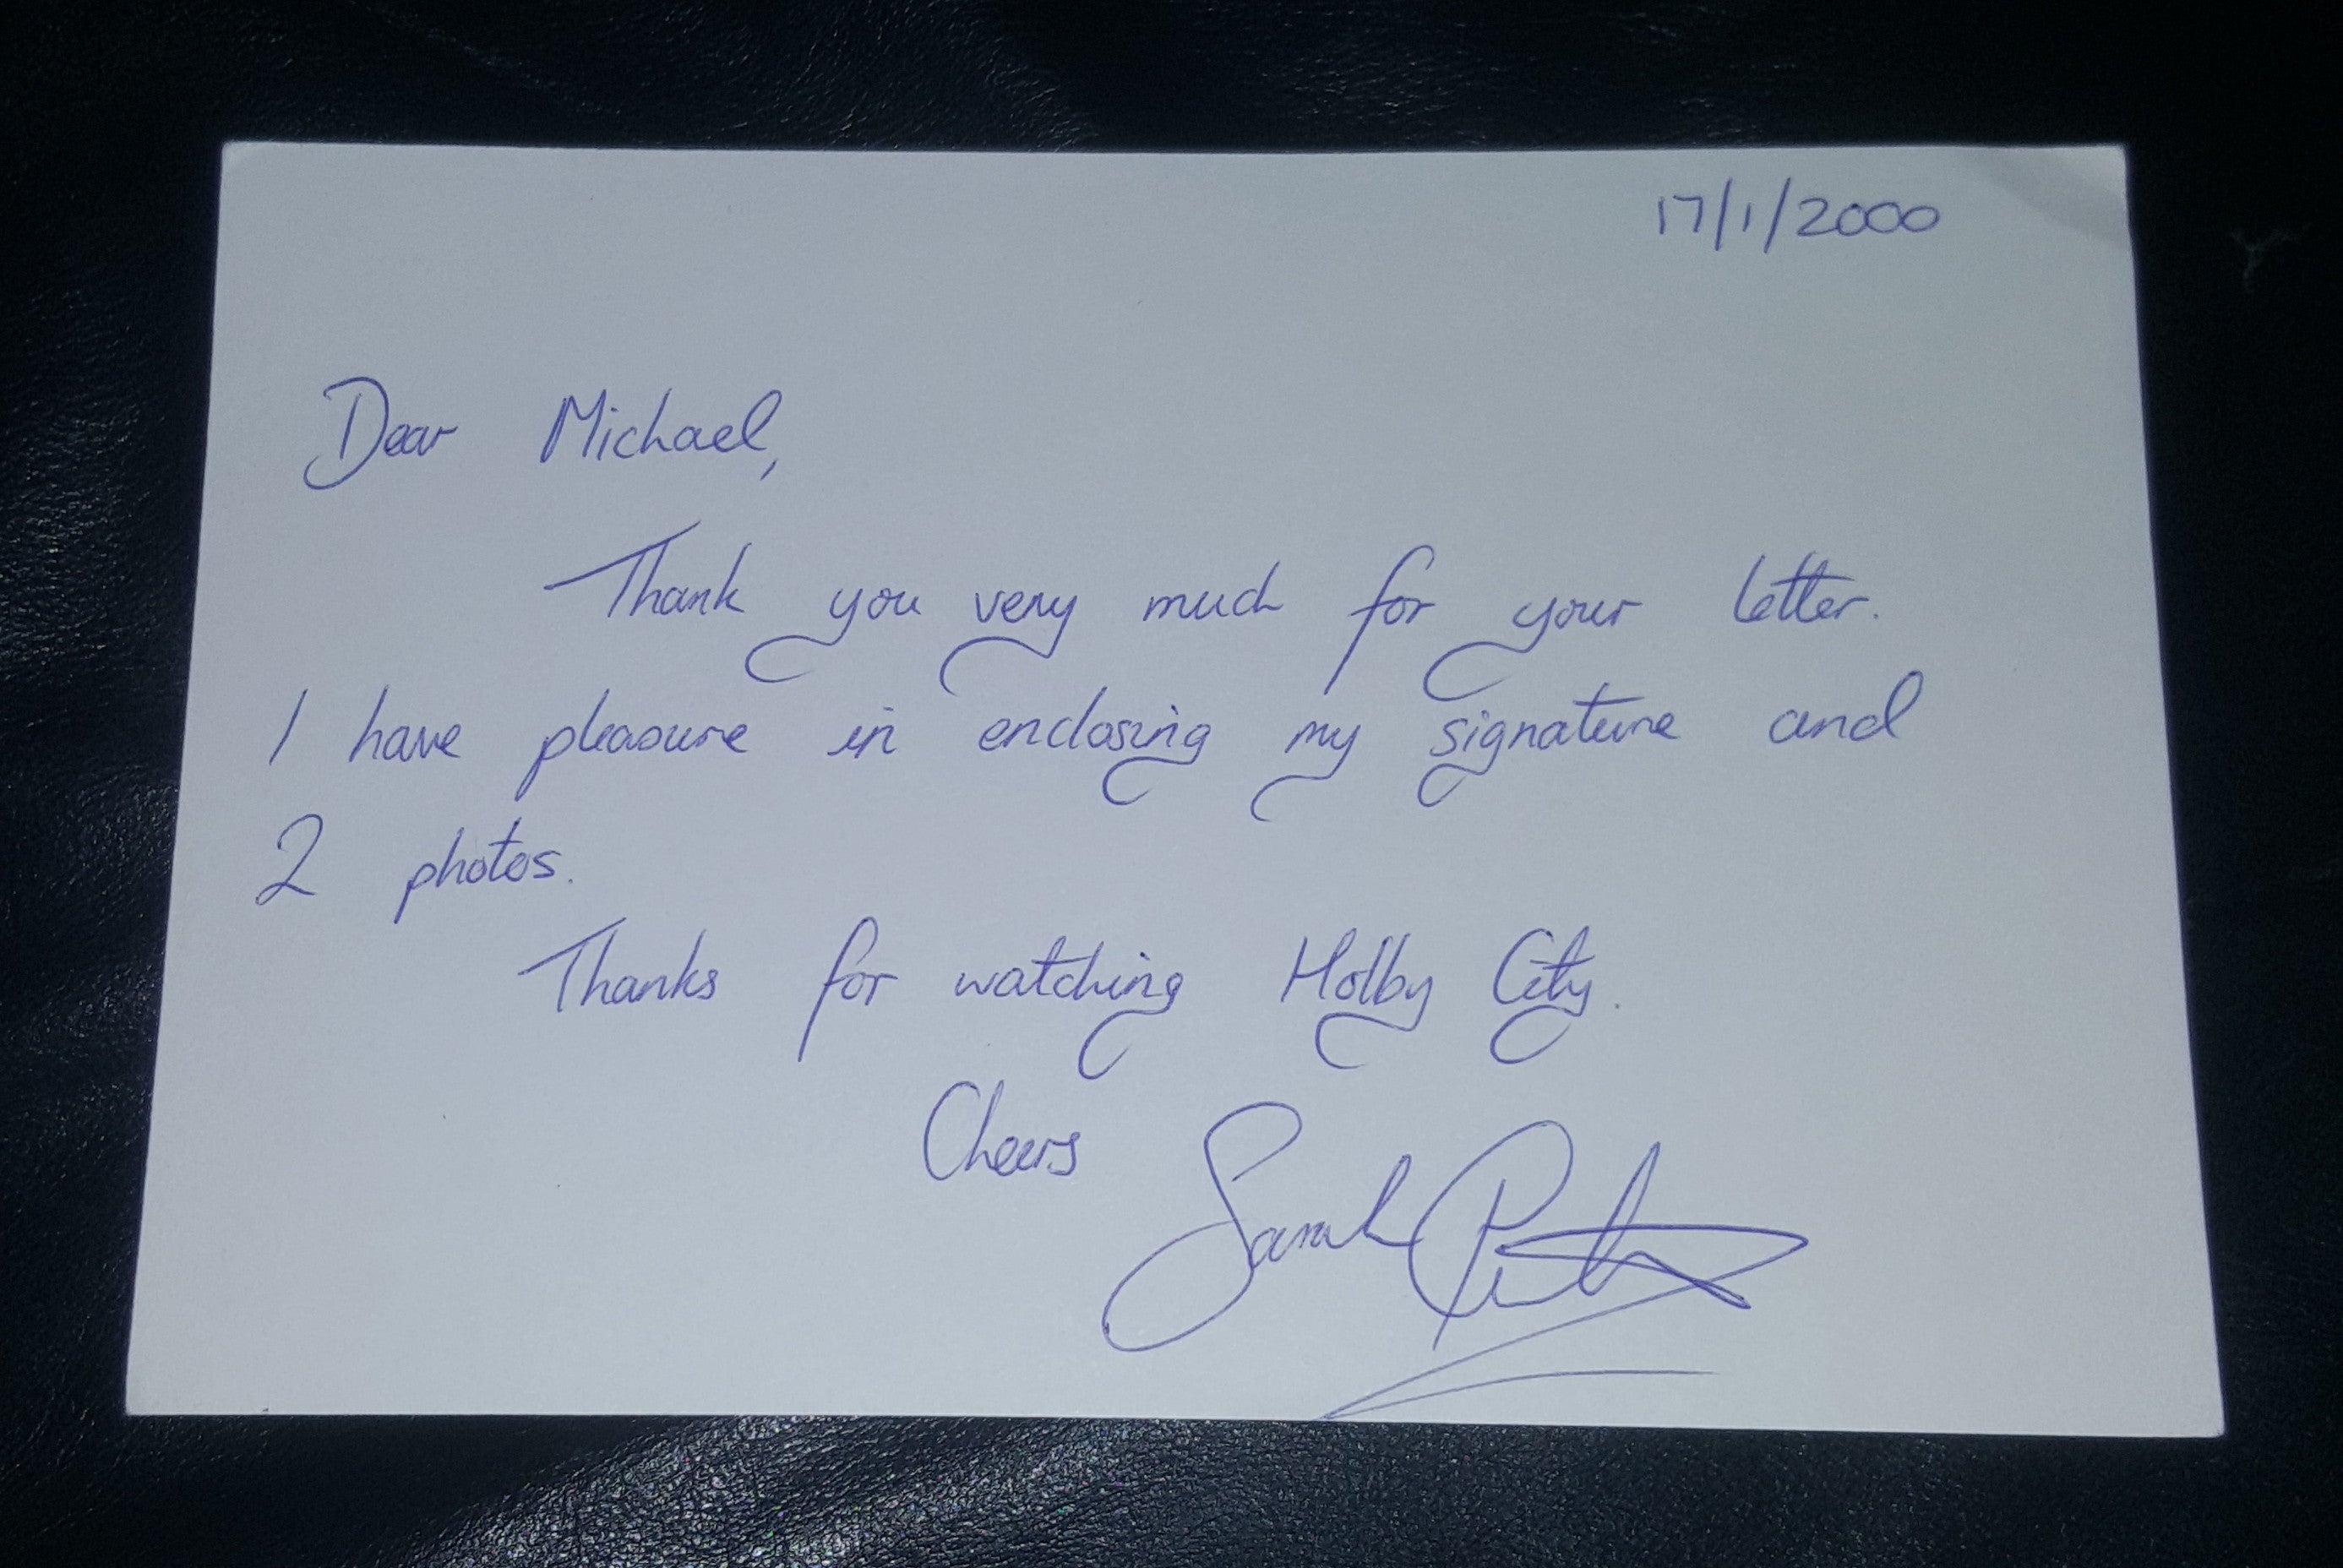 17/1/2000
Dear Michael,
Thank you very much for your letter.
I have pleasure in enclosing my signature and
2 photos.
Thanks for watching Holby City.
Cheers
Sarah